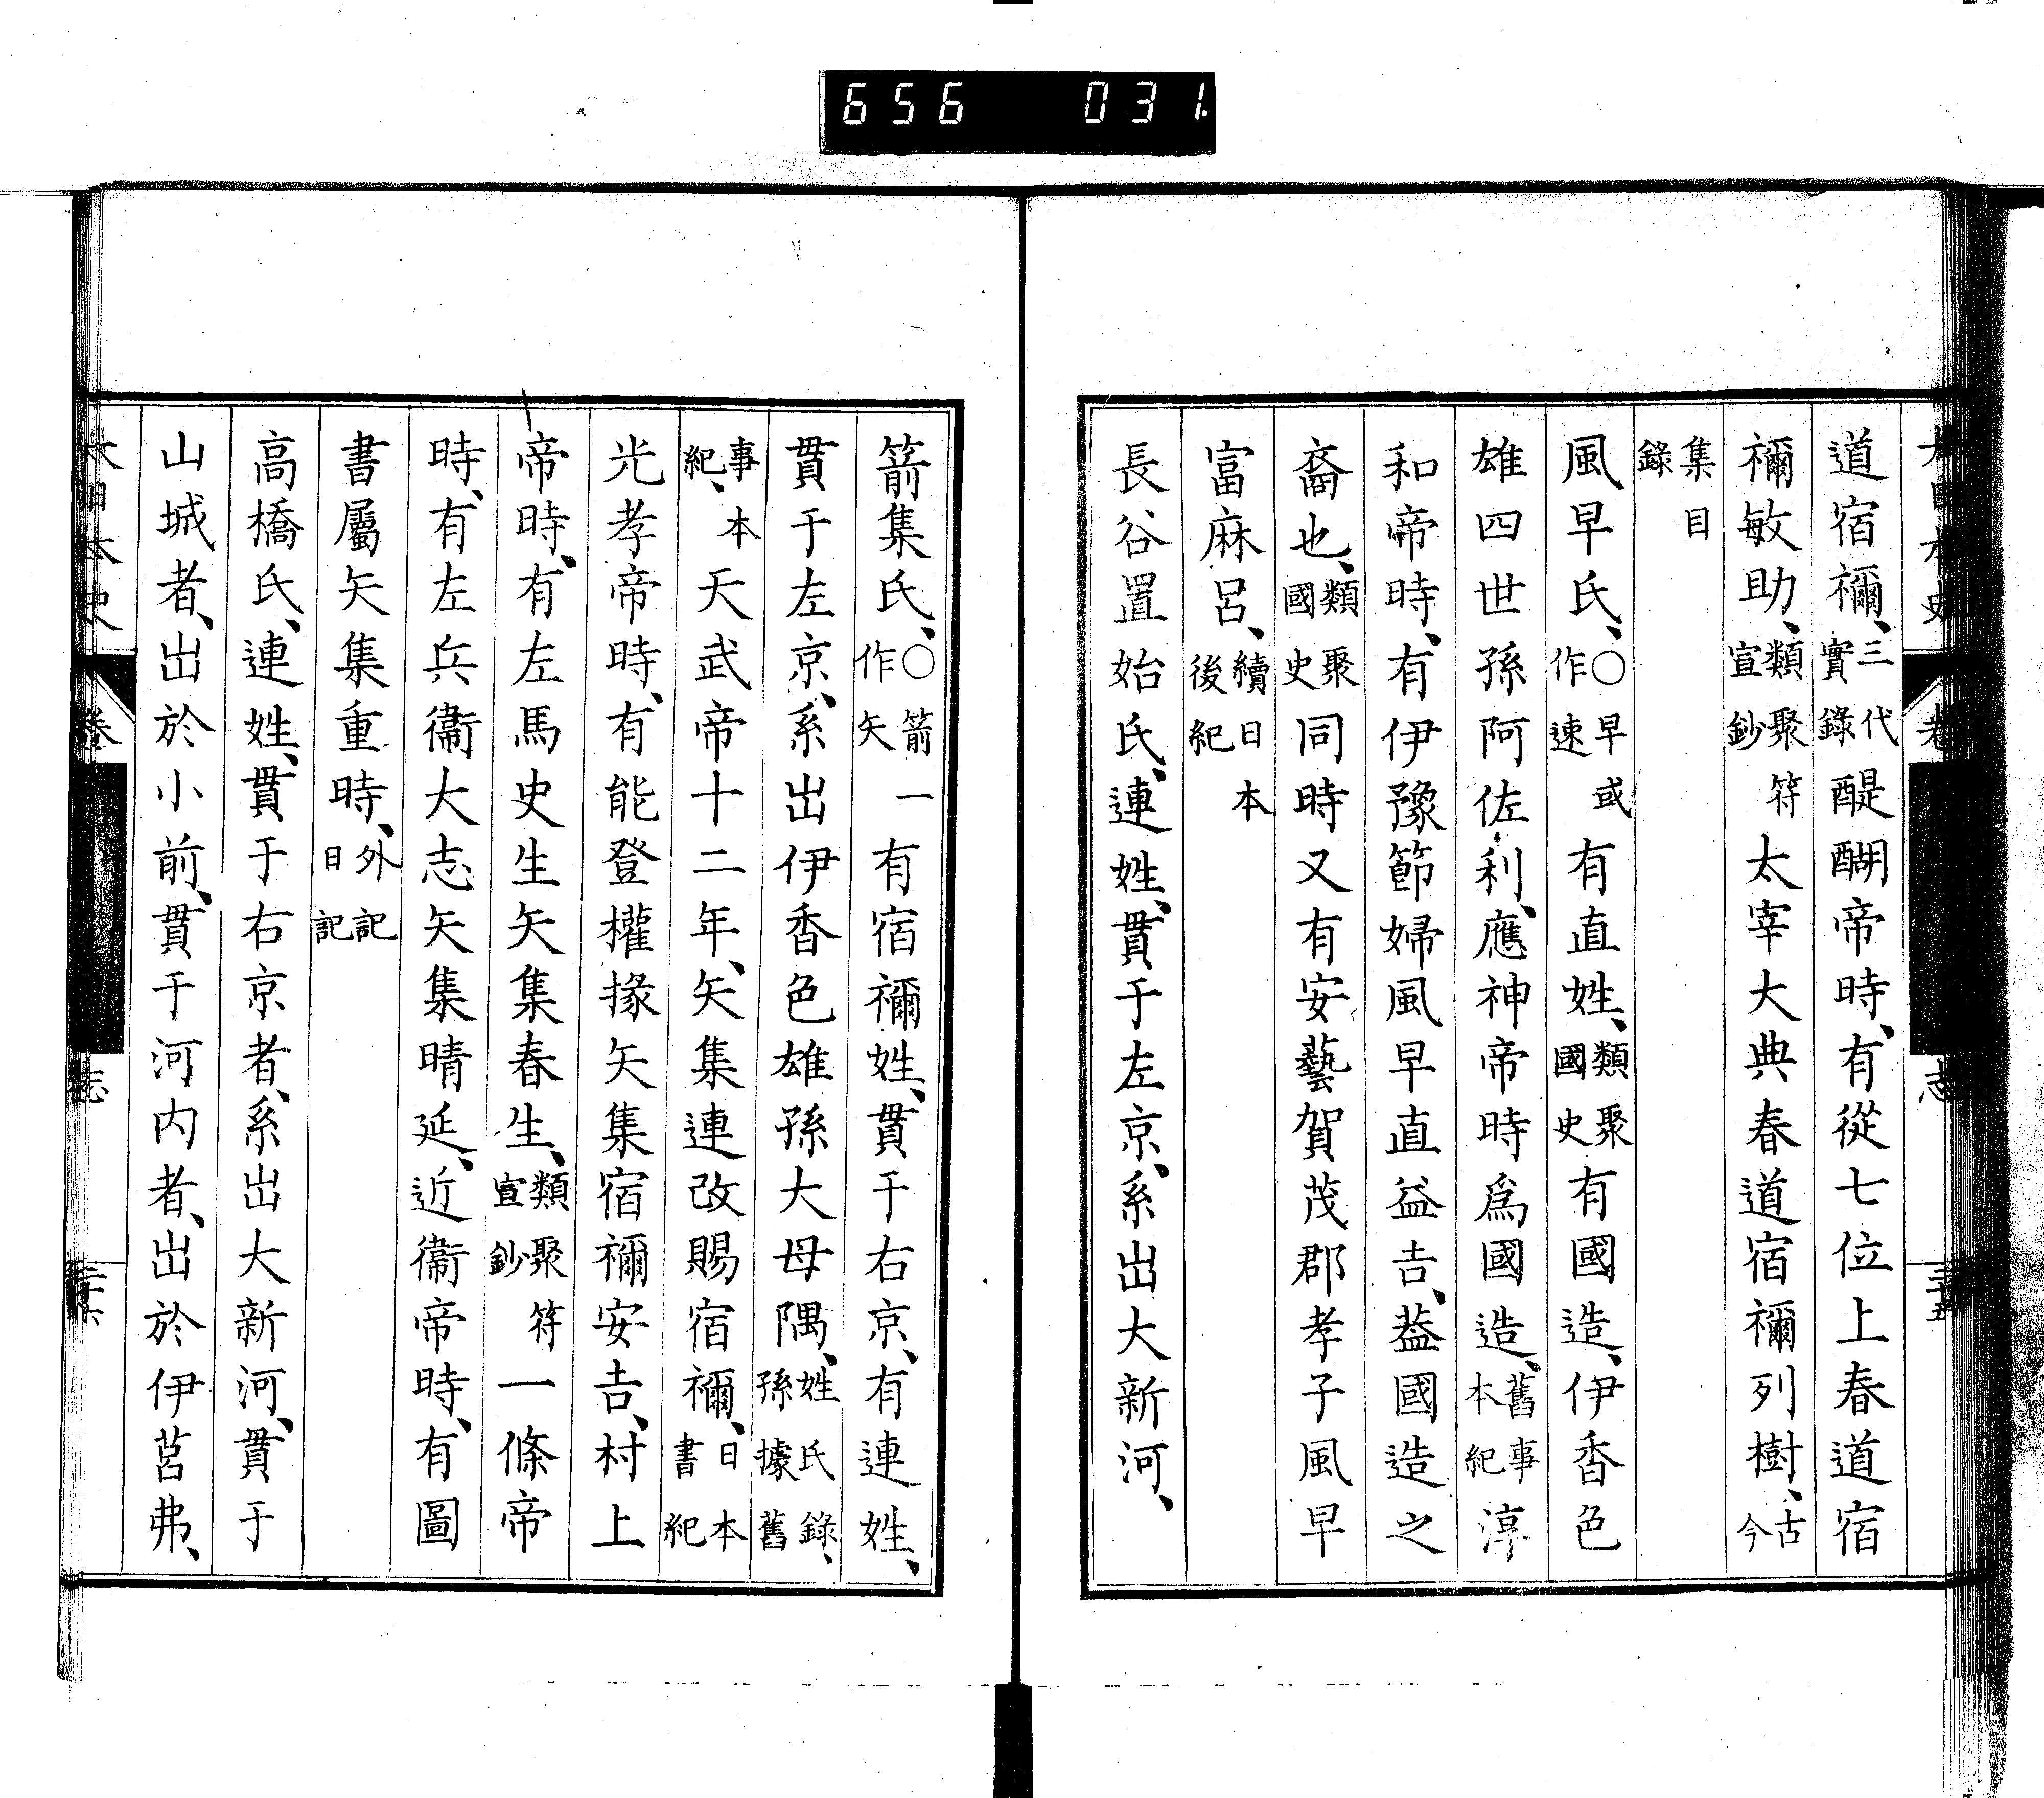 656 031
大日本史 卷 志 三十五
道宿禰、三代實錄醍醐帝時、有從七位上春道宿
禰敏助、類聚符宣鈔太宰大典春道宿禰列樹、古今
集目錄
風早氏、○早或作速有直姓、類聚國史有國造、伊香色
雄四世孫阿佐利、應神帝時爲國造、舊事本紀淳
和帝時、有伊豫節婦風早直益吉、益國造之
裔也、類聚國史同時又有安藝賀茂郡孝子風早
富麻呂、續日本後紀
長谷置始氏、連姓、貫于左京、系出大新河、
箭集氏、○箭一作矢有宿禰姓、貫于右京、有連姓、
貫于左京、系出伊香色雄孫大母隅、姓氏錄、孫據舊
事本紀、天武帝十二年、矢集連改賜宿禰、日本書紀
光孝帝時、有能登權掾矢集宿禰安吉、村上
帝時、有左馬史生矢集春生、類聚符宣鈔一條帝
時、有左兵衞大志矢集晴延、近衞帝時、有圖
書屬矢集重時、外記日記
高橋氏、連姓、貫于右京者、系出大新河、貫于
山城者、出於小前、貫于河内者、出於伊莒弗、
大日本史 卷 志 三十六